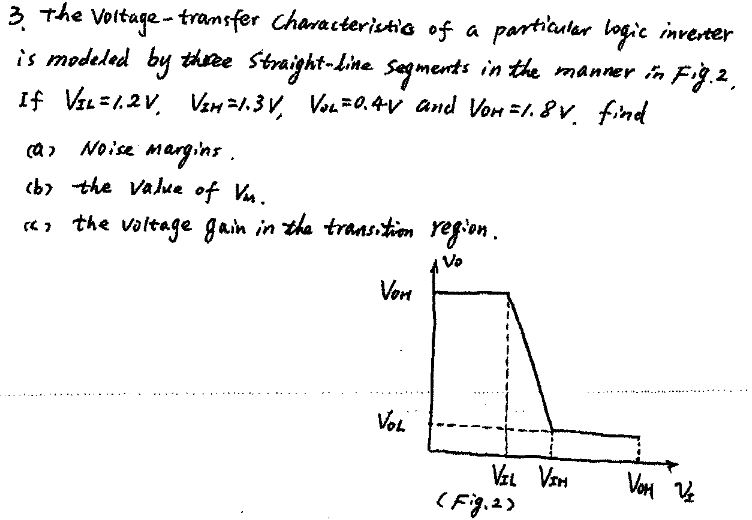 3. The Voltage-transfer Characteristics of a particular logic inverter
is modeled by three Straight-line segments in the manner in Fig.2.
If VIL=1.2V, VIH=1.3V, VOL=0.4V and VOH=1.8V. find
(a) Noise margins.
(b) the value of VM.
(c) the voltage gain in the transition region.
VO
VOH
VOL
VIL VIH VOH VI
(Fig.2)